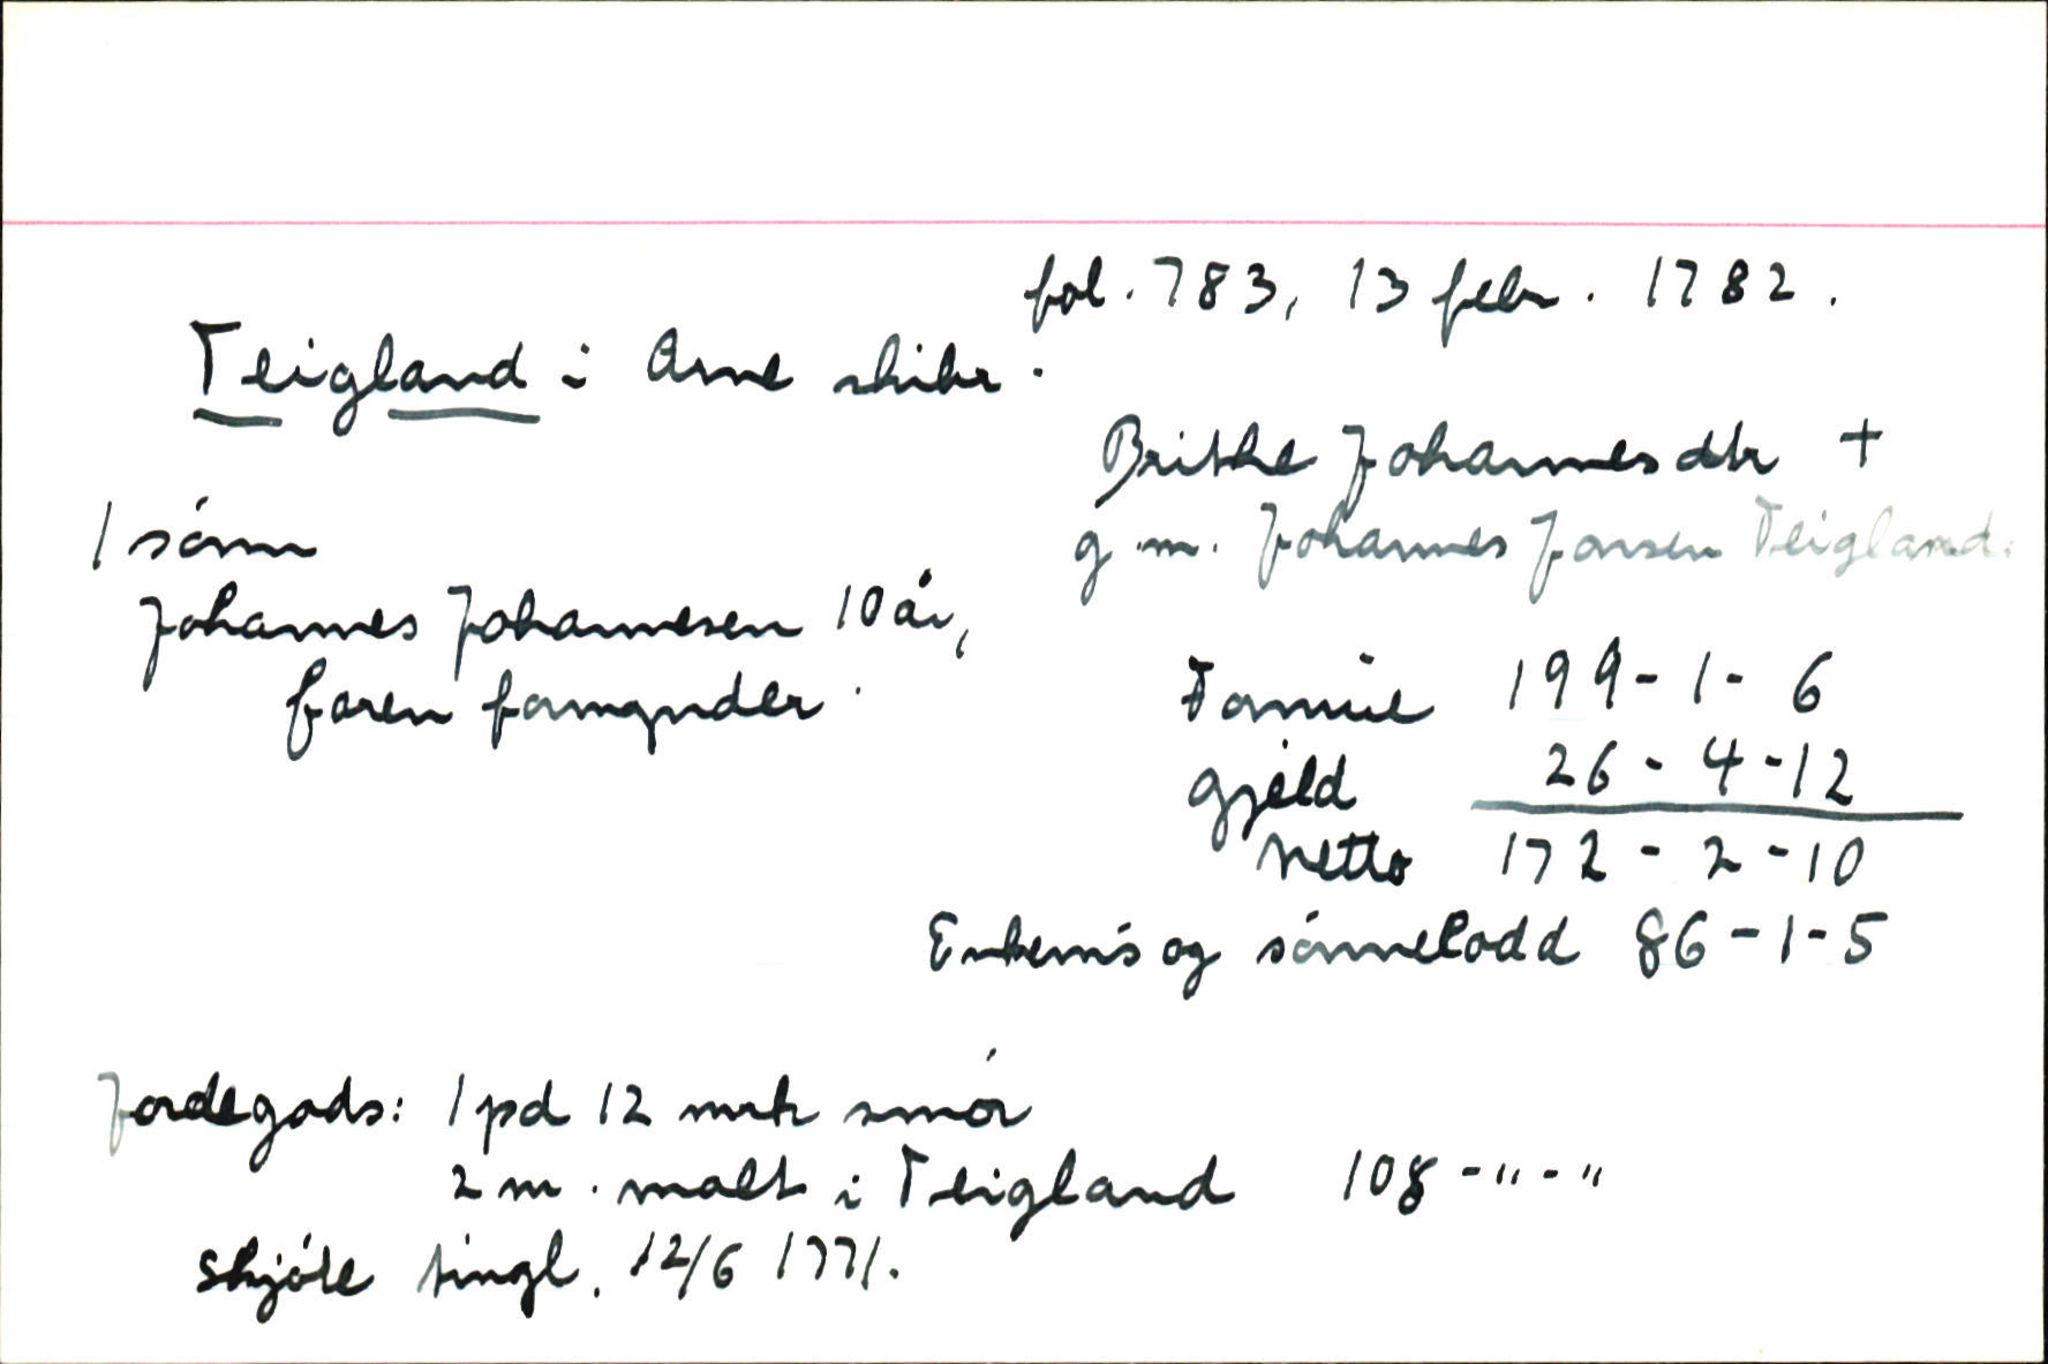 fol. 783, 13 febr. 1782.
Teigland i Arne skibr.
Brithe Johannesdtr +
g.m. Johannes Jonsen Teigland.
1 sónn
Johannes Johannesen 10 år,
faren formynder.
Formúe 199 - 1 - 6
gjeld 26 - 4 - 12
Netto 172 - 2 - 10
Enkem's og sónnelodd 86 - 1 - 5
Jordegods: 1 pd 12 mrk smór
2 m. malt i Teigland 108 - " - "
skjóte tingl. 12/6 1771.